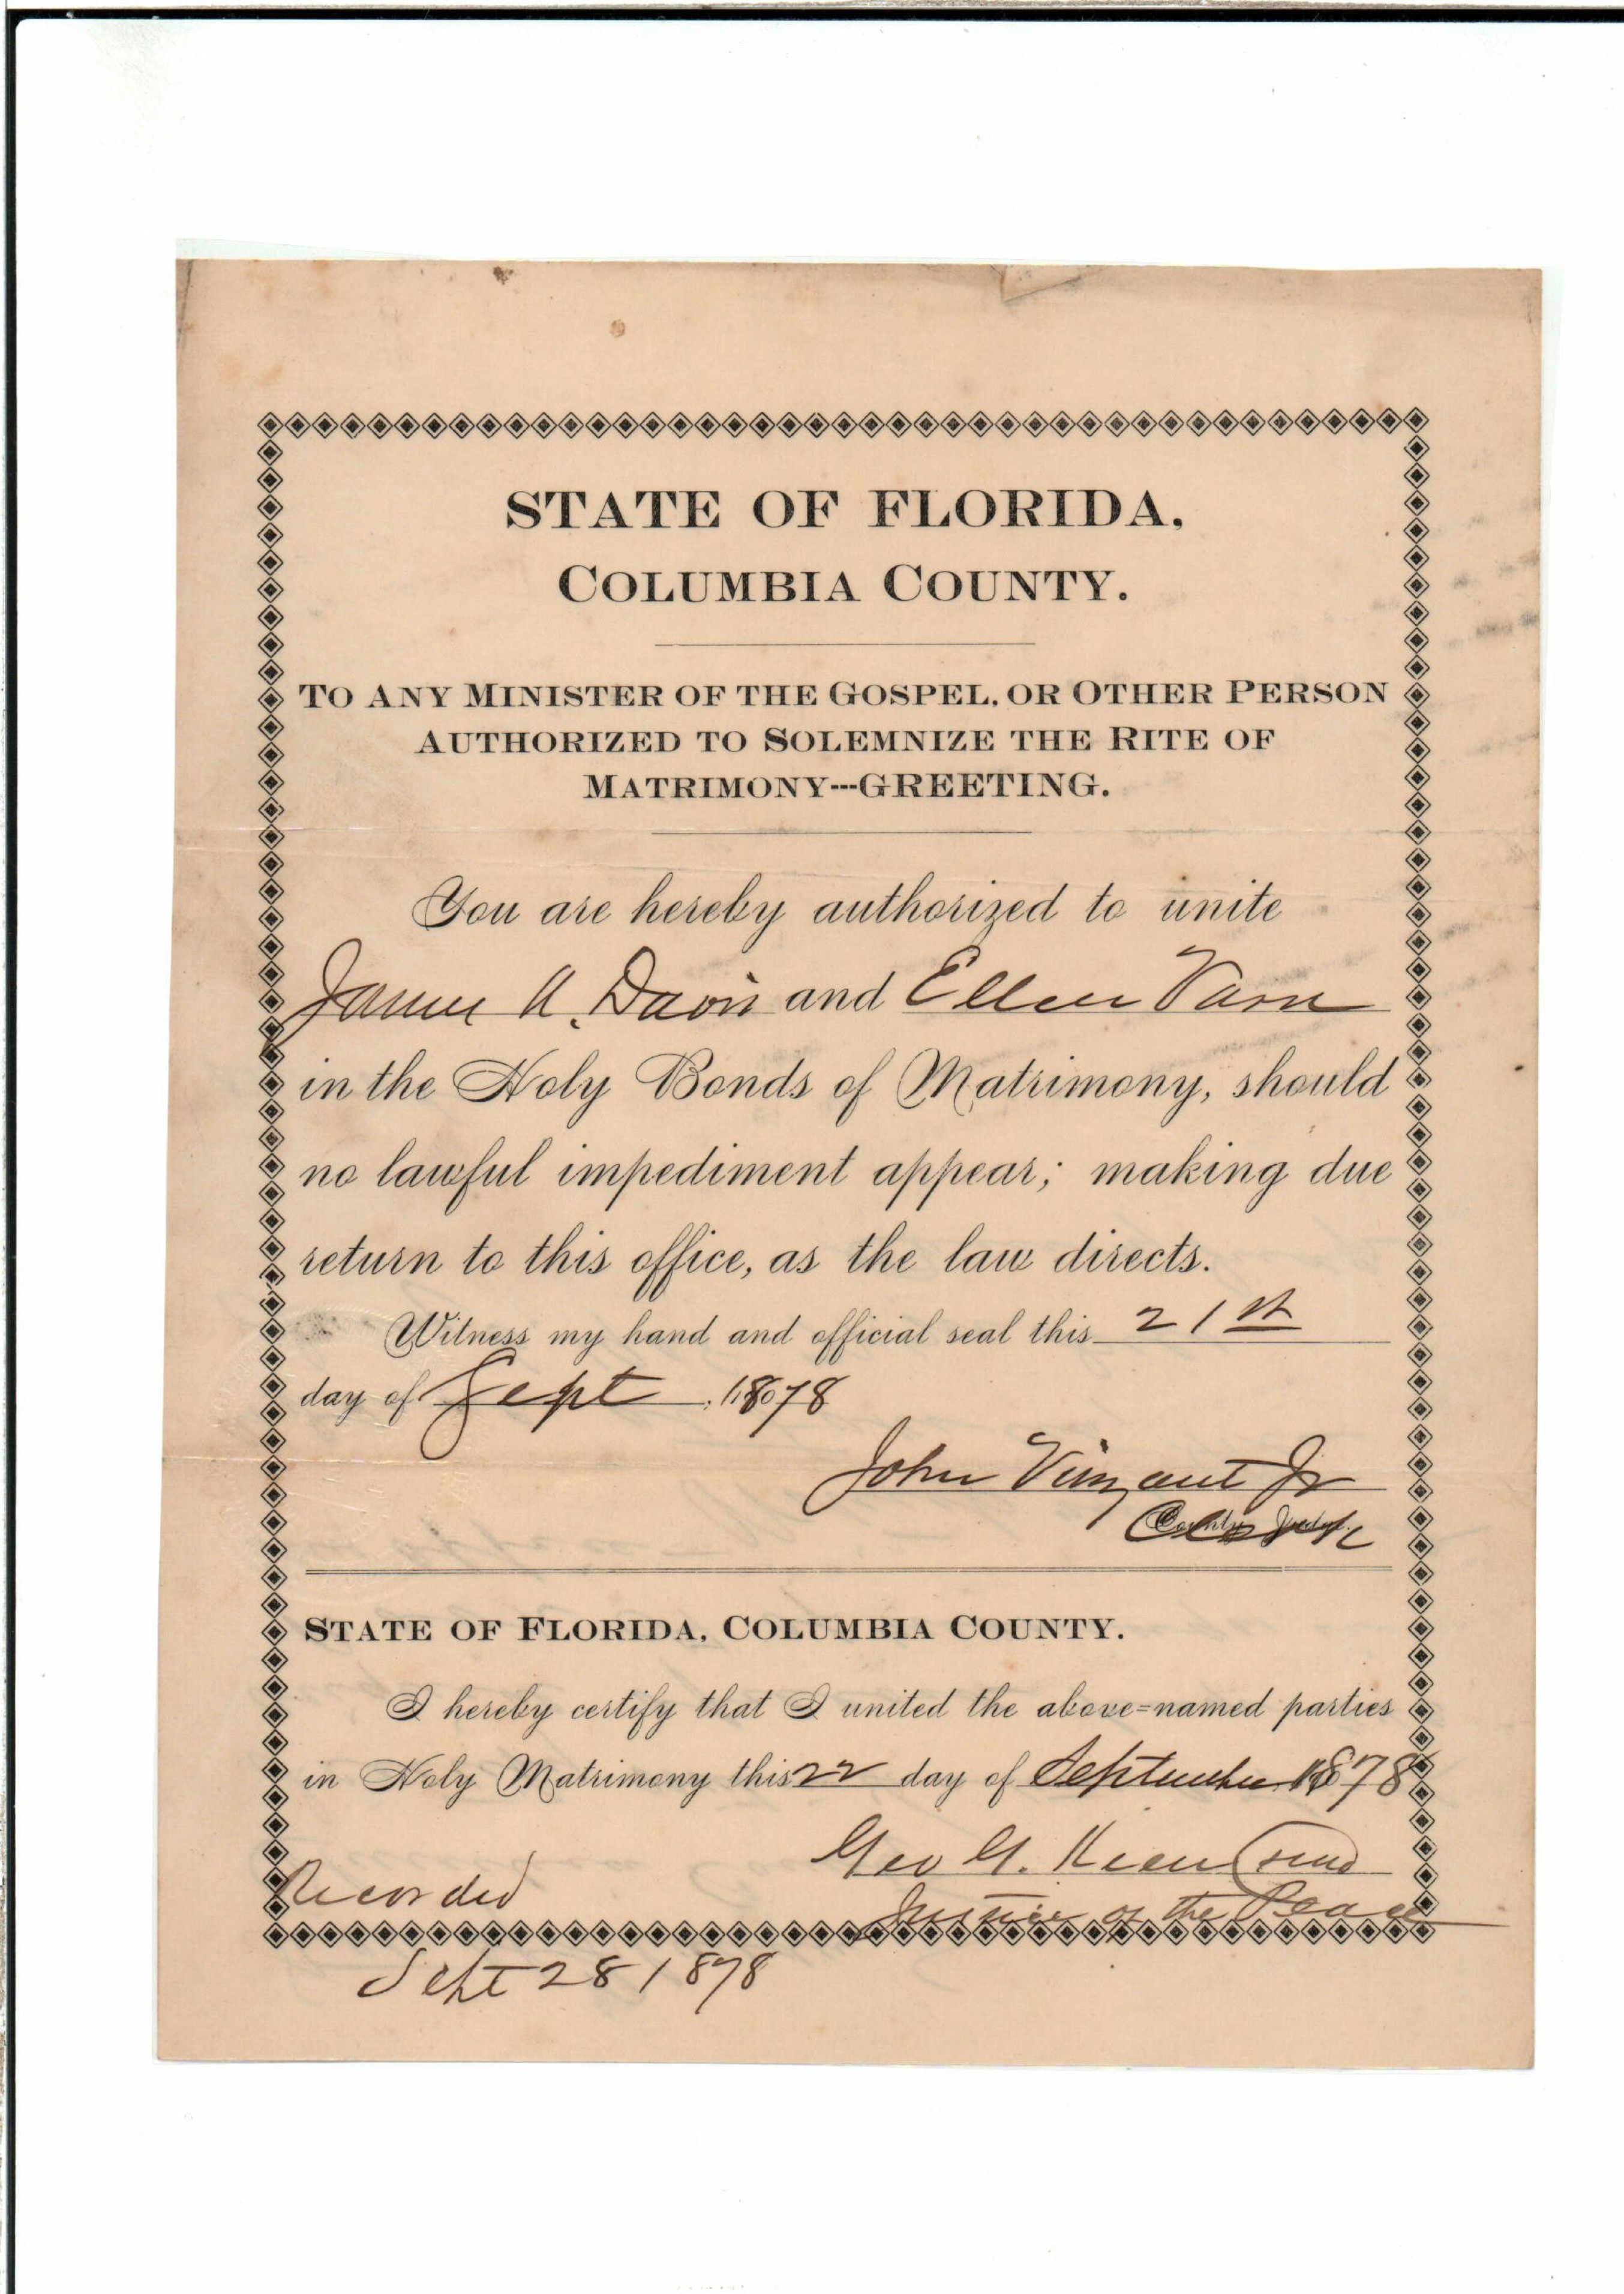 STATE OF FLORIDA,
COLUMBIA COUNTY.
TO ANY MINISTER OF THE GOSPEL, OR OTHER PERSON
AUTHORIZED TO SOLEMNIZE THE RITE OF
MATRIMONY---GREETING.
You are hereby authorized to unite
James A. Davis and Ellen Varn
in the Holy Bonds of Matrimony, should
no lawful impediment appear; making due
return to this office, as the law directs.
Witness my hand and official seal this 21st
day of Sept, 1878
John Vinzant Jr
Clerk
STATE OF FLORIDA, COLUMBIA COUNTY.
I hereby certify that I united the above=named parties
in Holy Matrimony this 22 day of September 1878
Geo G. Keen
Justice of the Peace
Recorded
Sept 28 1878